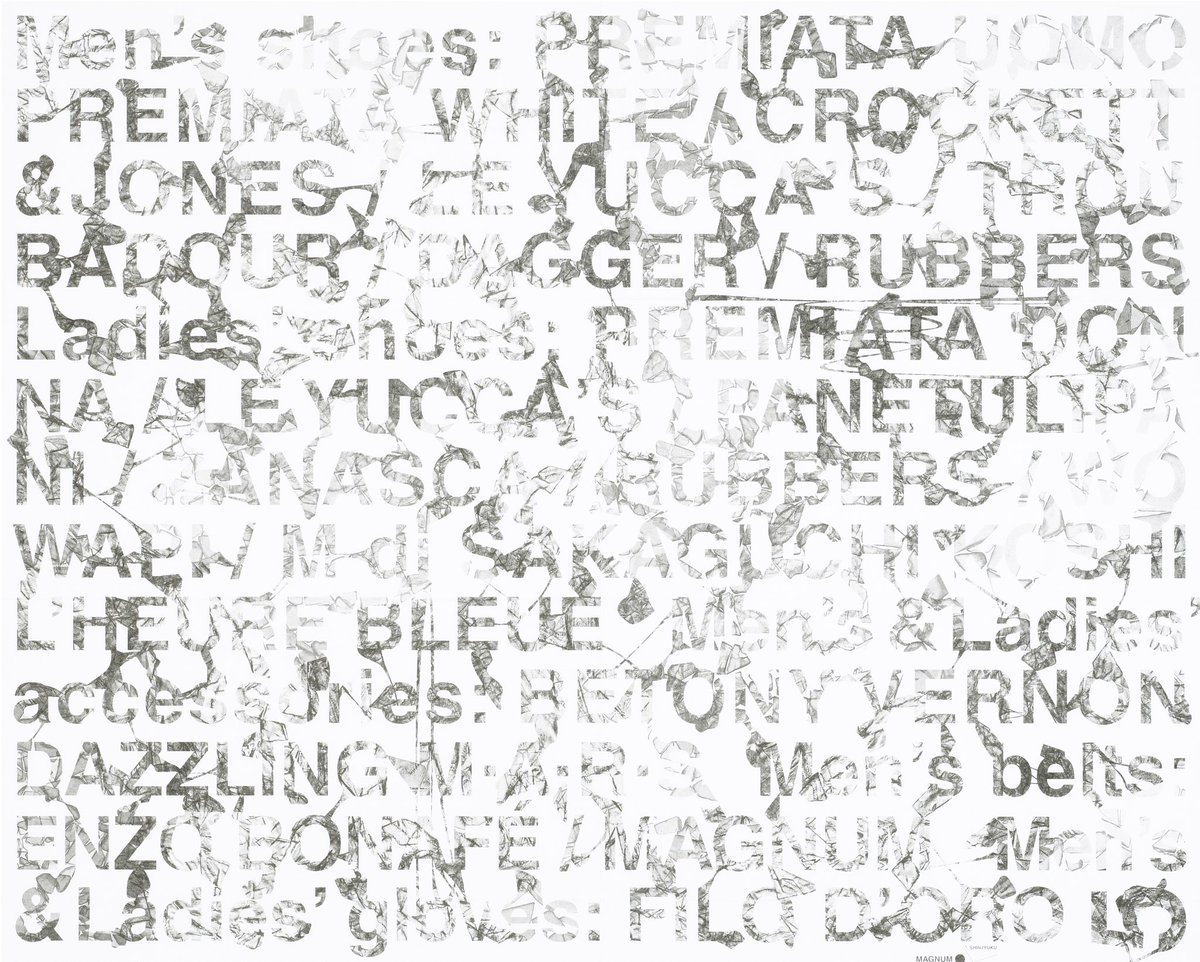 Men's shoes: PREMIATA UOMO
PREMIATA WHITE / CROCKETT
&JONES / LE YUCCA'S / TROU
BADOUR / DAGGER / RUBBERS
Ladies' shoes: PREMIATA DON
NA / LE YUCCA'S / PANETULIPA
NI / LANASCA / RUBBERS / WO
M.di SAKAGUCHI KOSHI
L'HEURE BLEUE Men's & Ladies'
accessories: BETONY VERNON
DAZZLING M·A·R·S Men's belts:
ENZO BONAFE / MAGNUM Men's
& Ladies' gloves: FILO D'ORO LO
MAGNUM
SHINJYUKU